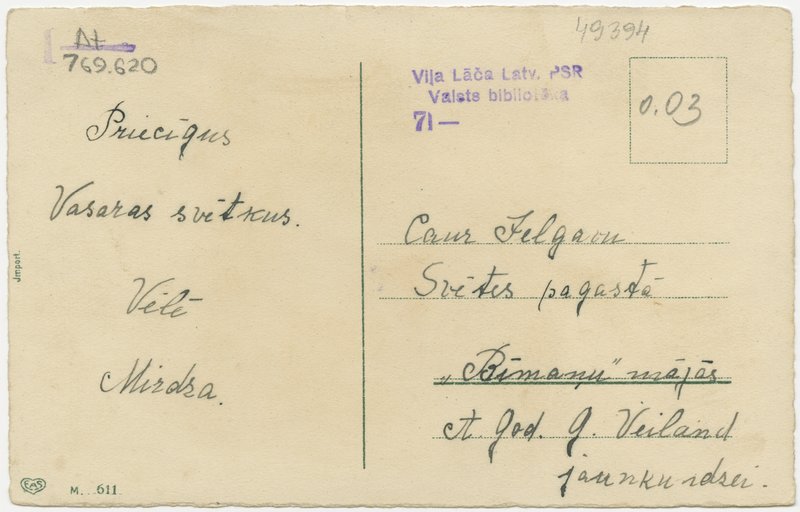 At
769.620
49394
Viļa Lāča Latv. PSR
Valsts bibliotēka
71—
0.03
Priecīgus
Vasaras svētkus.
Vēlē
Mirdza.
Caur Jelgavu
Svētes pagastā
„Bīmaņu" mājās
A. god. G. Veiland
jaunkundzei.
Jmport.
EAS
M. 611.